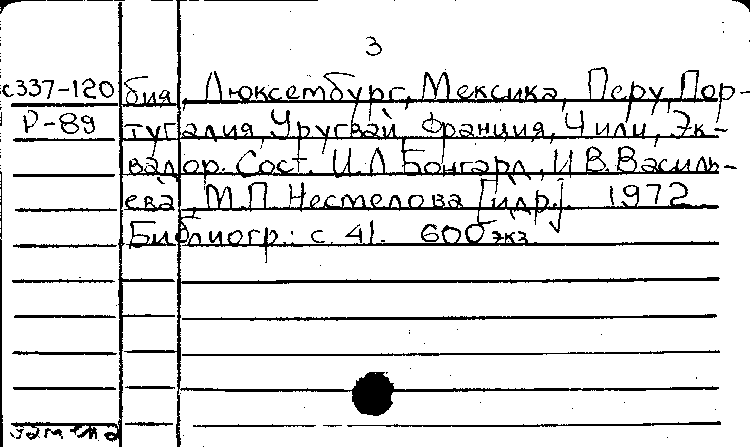 3
с337-120 бия, Люксембург, Мексика, Перу, Пор-
Р-89 тугалия, Уругвай, Франция, Чили, Эк-
вадор. Сост. И.Л. Бонгард, И.В. Василь-
ева, М.П. Нестелова [и др.]. 1972
Библиогр.: с. 41. 600 экз.
замена